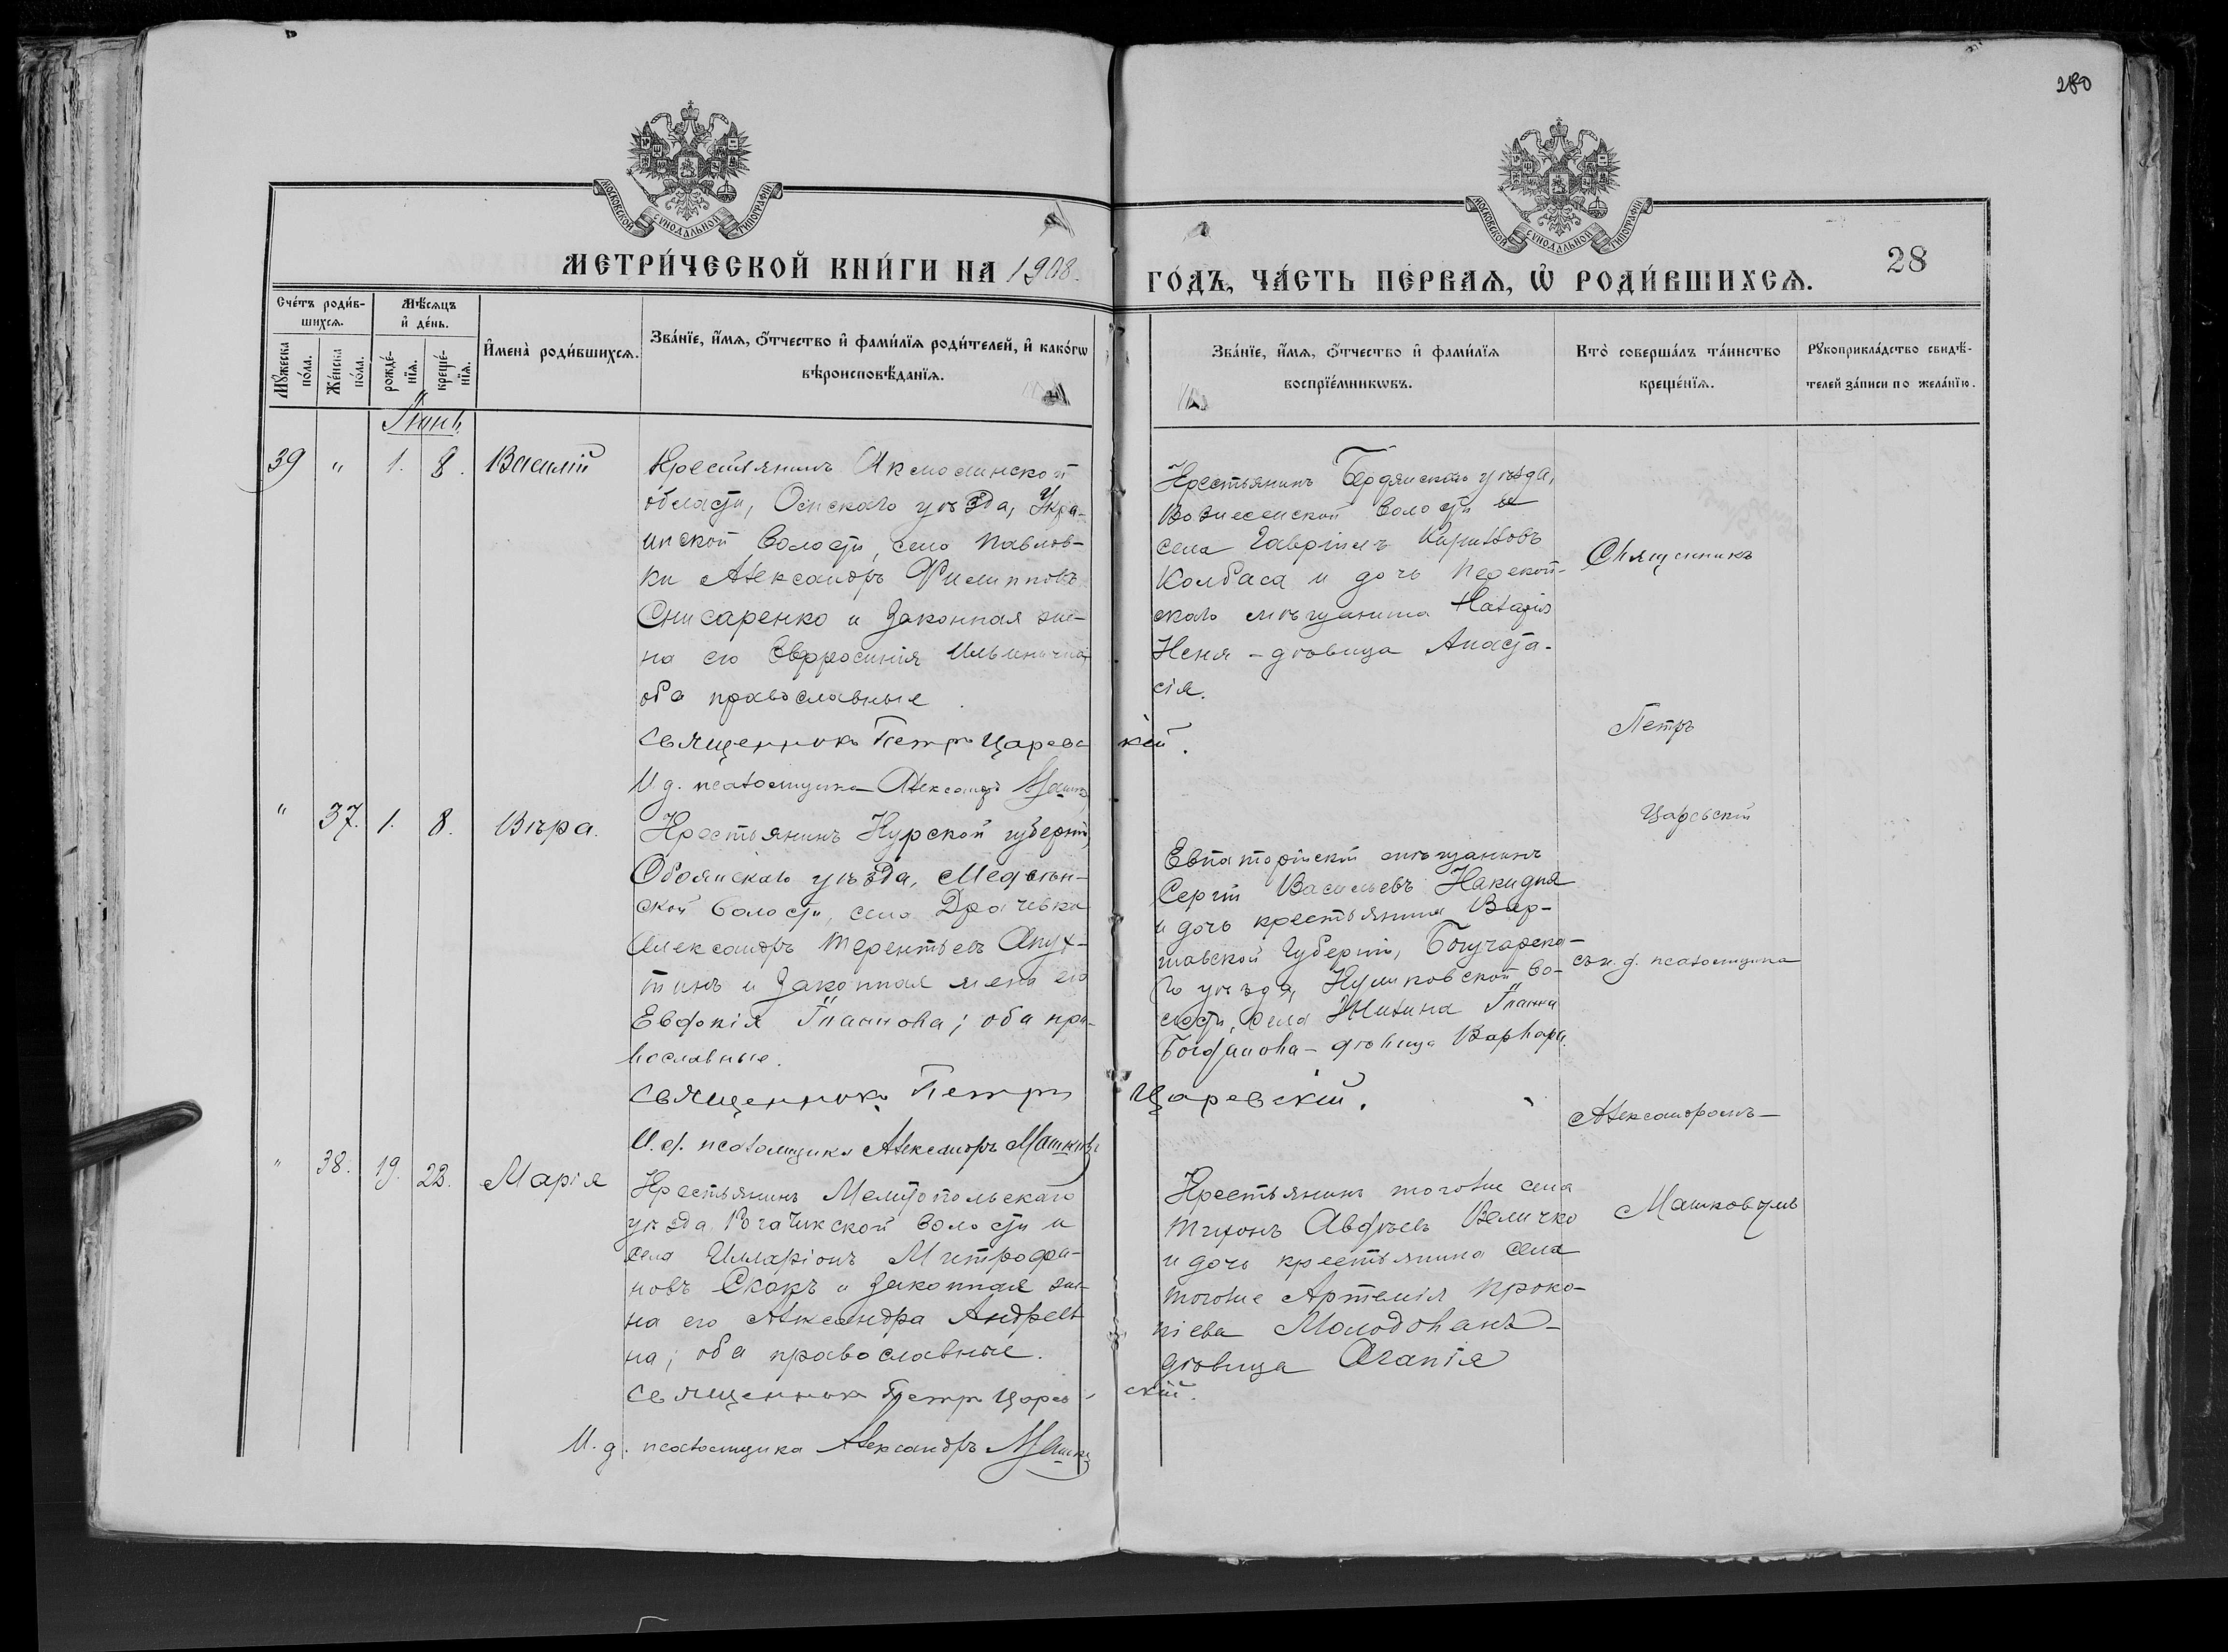 280
МОСКОВСКОЙ СѴНОДАЛЬНОЙ ТИПОГРАФІИ
МОСКОВСКОЙ СѴНОДАЛЬНОЙ ТИПОГРАФІИ
МЕТРИ́ЧЕСКОЙ КНИ́ГИ НА 1908.
ГО́ДЪ, ЧА́СТЬ ПЕ́РВАѦ, Ѡ҆ РОДИ́ВШИХСѦ.
28
Сче́тъ роди́в-
шихсѧ.
Мꙋ́жеска
по́ла.
Же́нска
по́ла.
Мѣ́сѧцъ
и҆ де́нь.
рожде́-
нїѧ.
креще́-
нїѧ.
И҆мена̀ роди́вшихсѧ.
Зва́нїе, и҆́мѧ, ѻ҆́тчество и҆ фами́лїѧ роди́телей, и҆ како́гѡ
вѣроисповѣ́данїѧ.
Зва́нїе, и҆́мѧ, ѻ҆́тчество и҆ фами́лїѧ
воспрїе́мникѡвъ.
Кто̀ соверша́лъ та́инство
креще́нїѧ.
Рꙋкоприкла́дство свидѣ́-
телей за́писи по жела́нїю.
Іюнь
39 " 1. 8. Василій
Крестьянинъ Акмолинской
области, Омскаго уѣзда, Укра-
инской волости, села Павлов-
ки Александръ Филипповъ
Снисаренко и законная же-
на его Евфросинія Ильинична
оба православные
Священникъ Петръ Царевскій.
И. д. псаломщика Александръ Машк
Крестьянинъ Бердянскаго уѣзда,
Вознесенской волости и
села Гавріилъ Кирилловъ
Колбаса и дочь Перекоп-
скаго мѣщанина Наталія
Неня - дѣвица Анаста-
сія.
Священникъ
Петръ
Царевскій
съ и. д. псаломщика
Александромъ
Машковымъ
" 37. 1. 8. Вѣра.
Крестьянинъ Курской губерніи,
Обоянскаго уѣзда, Медвѣн-
ской волости, села Драчевки
Александръ Терентьевъ Апух-
тинъ и законная жена его
Евдокія Іоаннова; оба пра-
вославные.
Священникъ Петръ Царевскій.
И. д. псаломщика Александръ Машковъ
Евпаторійскій мѣщанинъ
Сергій Васильевъ Накидня
и дочь крестьянина Вар-
шавской губерніи, Богучарска-
го уѣзда, во-
лости, села Іоанна
Богданова - дѣвица Варвара.
" 38. 19. 22. Марія
Крестьянинъ Мелитопольскаго
уѣзда Рогачикской волости и
села Илларіонъ Митрофа-
новъ Скокъ и законная же-
на его Александра Андреев-
на; оба православные.
Священникъ Петръ Царевскій.
И. д. псаломщика Александръ Машк
Крестьянинъ тогоже села
Тихонъ Авдѣевъ Величко
и дочь крестьянина села
тогоже Артемія Проко-
піева Молодованъ -
дѣвица Агапія